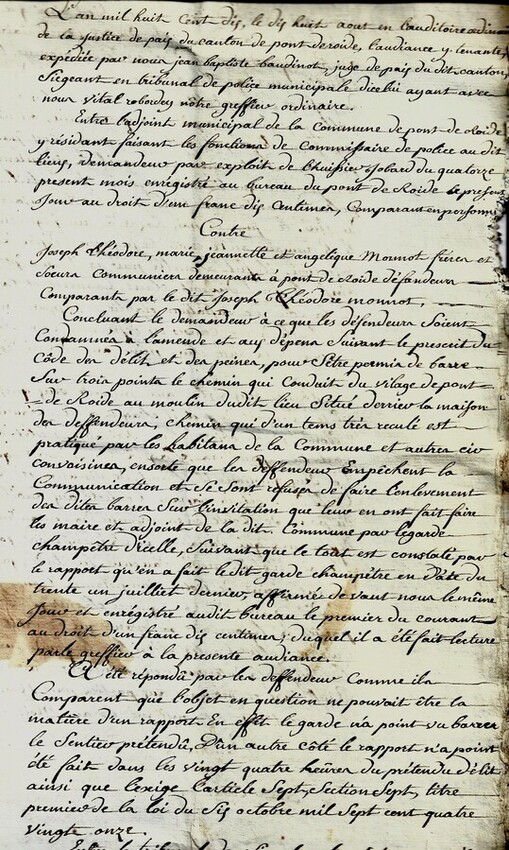 L'an mil huit Cent dix, le dix huit aout en L'auditoire ordin
de la Justice de paix du canton de pont deroide, laudiance y tenante,
expédiée par nous jean baptiste baudinot, juge de paix du dit canton,
Siegeant en tribunal de police municipale dicelui ayant avec
nous vital robardey nôtre greffier ordinaire.
Entre l'adjoint municipal de la commune de pont-de Roide
y résidant faisant les fonctions de Commissaire de police au dit
lieu, demandeur par exploit de lhuissier Jobard du quatorze
present mois enregistré au bureau du pont de Roide le présent
Jour au droit d'un franc dix Centimes, Comparant en personne
Contre
Joseph théodore, marie, jeannette et angelique Monnot frères et
Soeurs Communiers demeurants à pont de Roide défendeurs
Comparants par le dit Joseph théodore monnot,
Concluant le demandeur à ce que les défendeurs Soient
Condamnés à l'amende et aux dépens Suivant le prescrit du
Côde des délit et des peines, pour S'être permis de barrer
Sur trois points le chemin qui Conduit du vilage de pont
-de Roide au moulin dudit lieu Situé derrier la maison
des deffendeurs, chemin qui d'un tems très reculé est
pratiqué par les habitans de la Commune et autres cir
convoisines, ensorte que les deffendeurs Empêchent la
Communication et Se Sont refusés de faire l'enlevement
des dites barres Sur l'invitation que leur en ont fait faire
les maire et adjoint de la dit. Commune par legarde
champêtre d'icelle, Suivant que le tout est constaté par
le rapport qu'en a fait ledit garde champêtre en Date du
trente un juilliet dernier, affirmée devant nous le même
Jour et enregistré audit bureau le premier du courant
au droit d'un franc dix centimes; duquel il a été fait lecture
parle greffier à la presente audiance.
A été répondu par les deffendeurs Comme ils
Comparent que l'objet en question ne pouvait être la
matière d'un rapport. En effet le garde n'a point vu barrer
le Sentier prétendu, D'un autre côté le rapport n'a point
été fait dans les vingt quatre heures du prétendu délit
ainsi que l'exige l'article Sept, Section Sept, titre
premier de la loi du Six octobre mil Sept cent quatre
vingt onze.